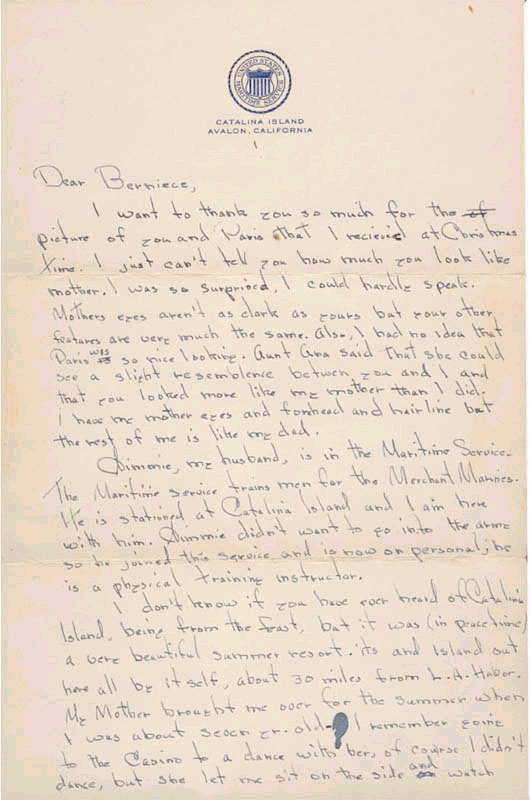 UNITED STATES MARITIME SERVICE
CATALINA ISLAND
AVALON, CALIFORNIA
1
Dear Berniece,
I want to thank you so much for the of
picture of you and Paris that I recieved at Christmas
time. I just can't tell you how much you look like
mother. I was so surprised, I could hardly speak.
Mothers eyes aren't as dark as yours but your other
features are very much the same. Also, I had no idea that
Paris was so nice looking. Aunt Ana said that she could
see a slight resemblence between you and I and
that you looked more like my mother than I did.
I have my mother eyes and forhead and hairline but
the rest of me is like my dad.
Jimmie, my husband, is in the Maritime Service.
The Maritime service trains men for the Merchant Marines.
He is stationed at Catalina Island and I am here
with him. Jimmie didn't want to go into the army
so he joined this service and is now on personal, he
is a physical training instructor.
I don't know if you have ever heard of Catalina
Island, being from the East, but it was (in peacetime)
a very beautiful summer resort. its and Island out
here all by itself, about 30 miles from L.A. Habor.
My Mother brought me over for the summer when
I was about seven yr. old. I remember going
to the Casino to a dance with her, of course I didn't
dance, but she let me sit on the side and watch